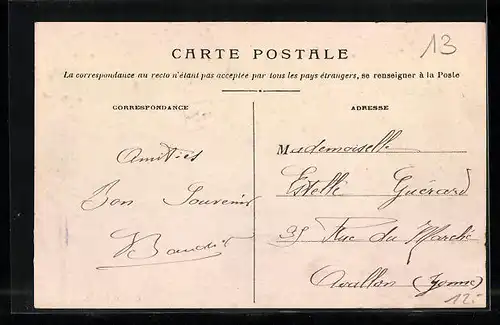 13
CARTE POSTALE
La correspondance au recto n'étant pas acceptée par tous les pays étrangers, se renseigner à la Poste
CORRESPONDANCE
ADRESSE
Amitiés
Bon Souvenir
Mademoiselle
Estelle Guérard
35 Rue du Marché
Avallon (Yonne)
12.-